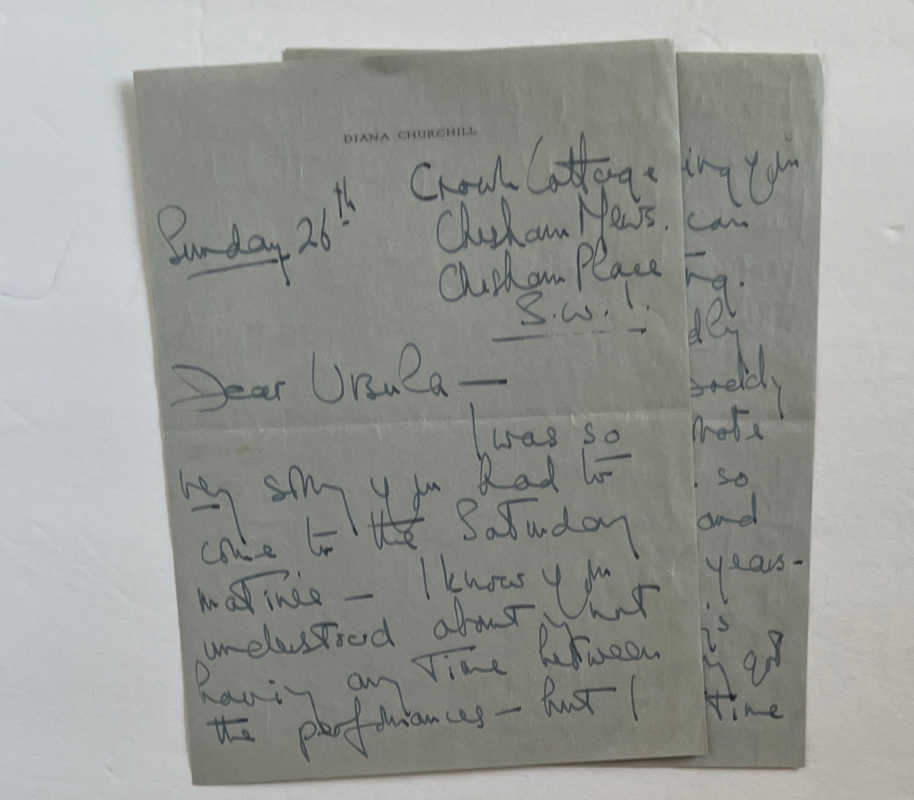 DIANA CHURCHILL
Cottage
Sunday 26th
Chesham Mews.
Chesham Place
S.W.1.
Dear Ursula —
I was so
very sorry you had to
come to the Saturday
matinée — I know you
understood about my not
having any time between
the performances — but I
ing you
can
ng.
dly
note
. so
and
years-
is
time